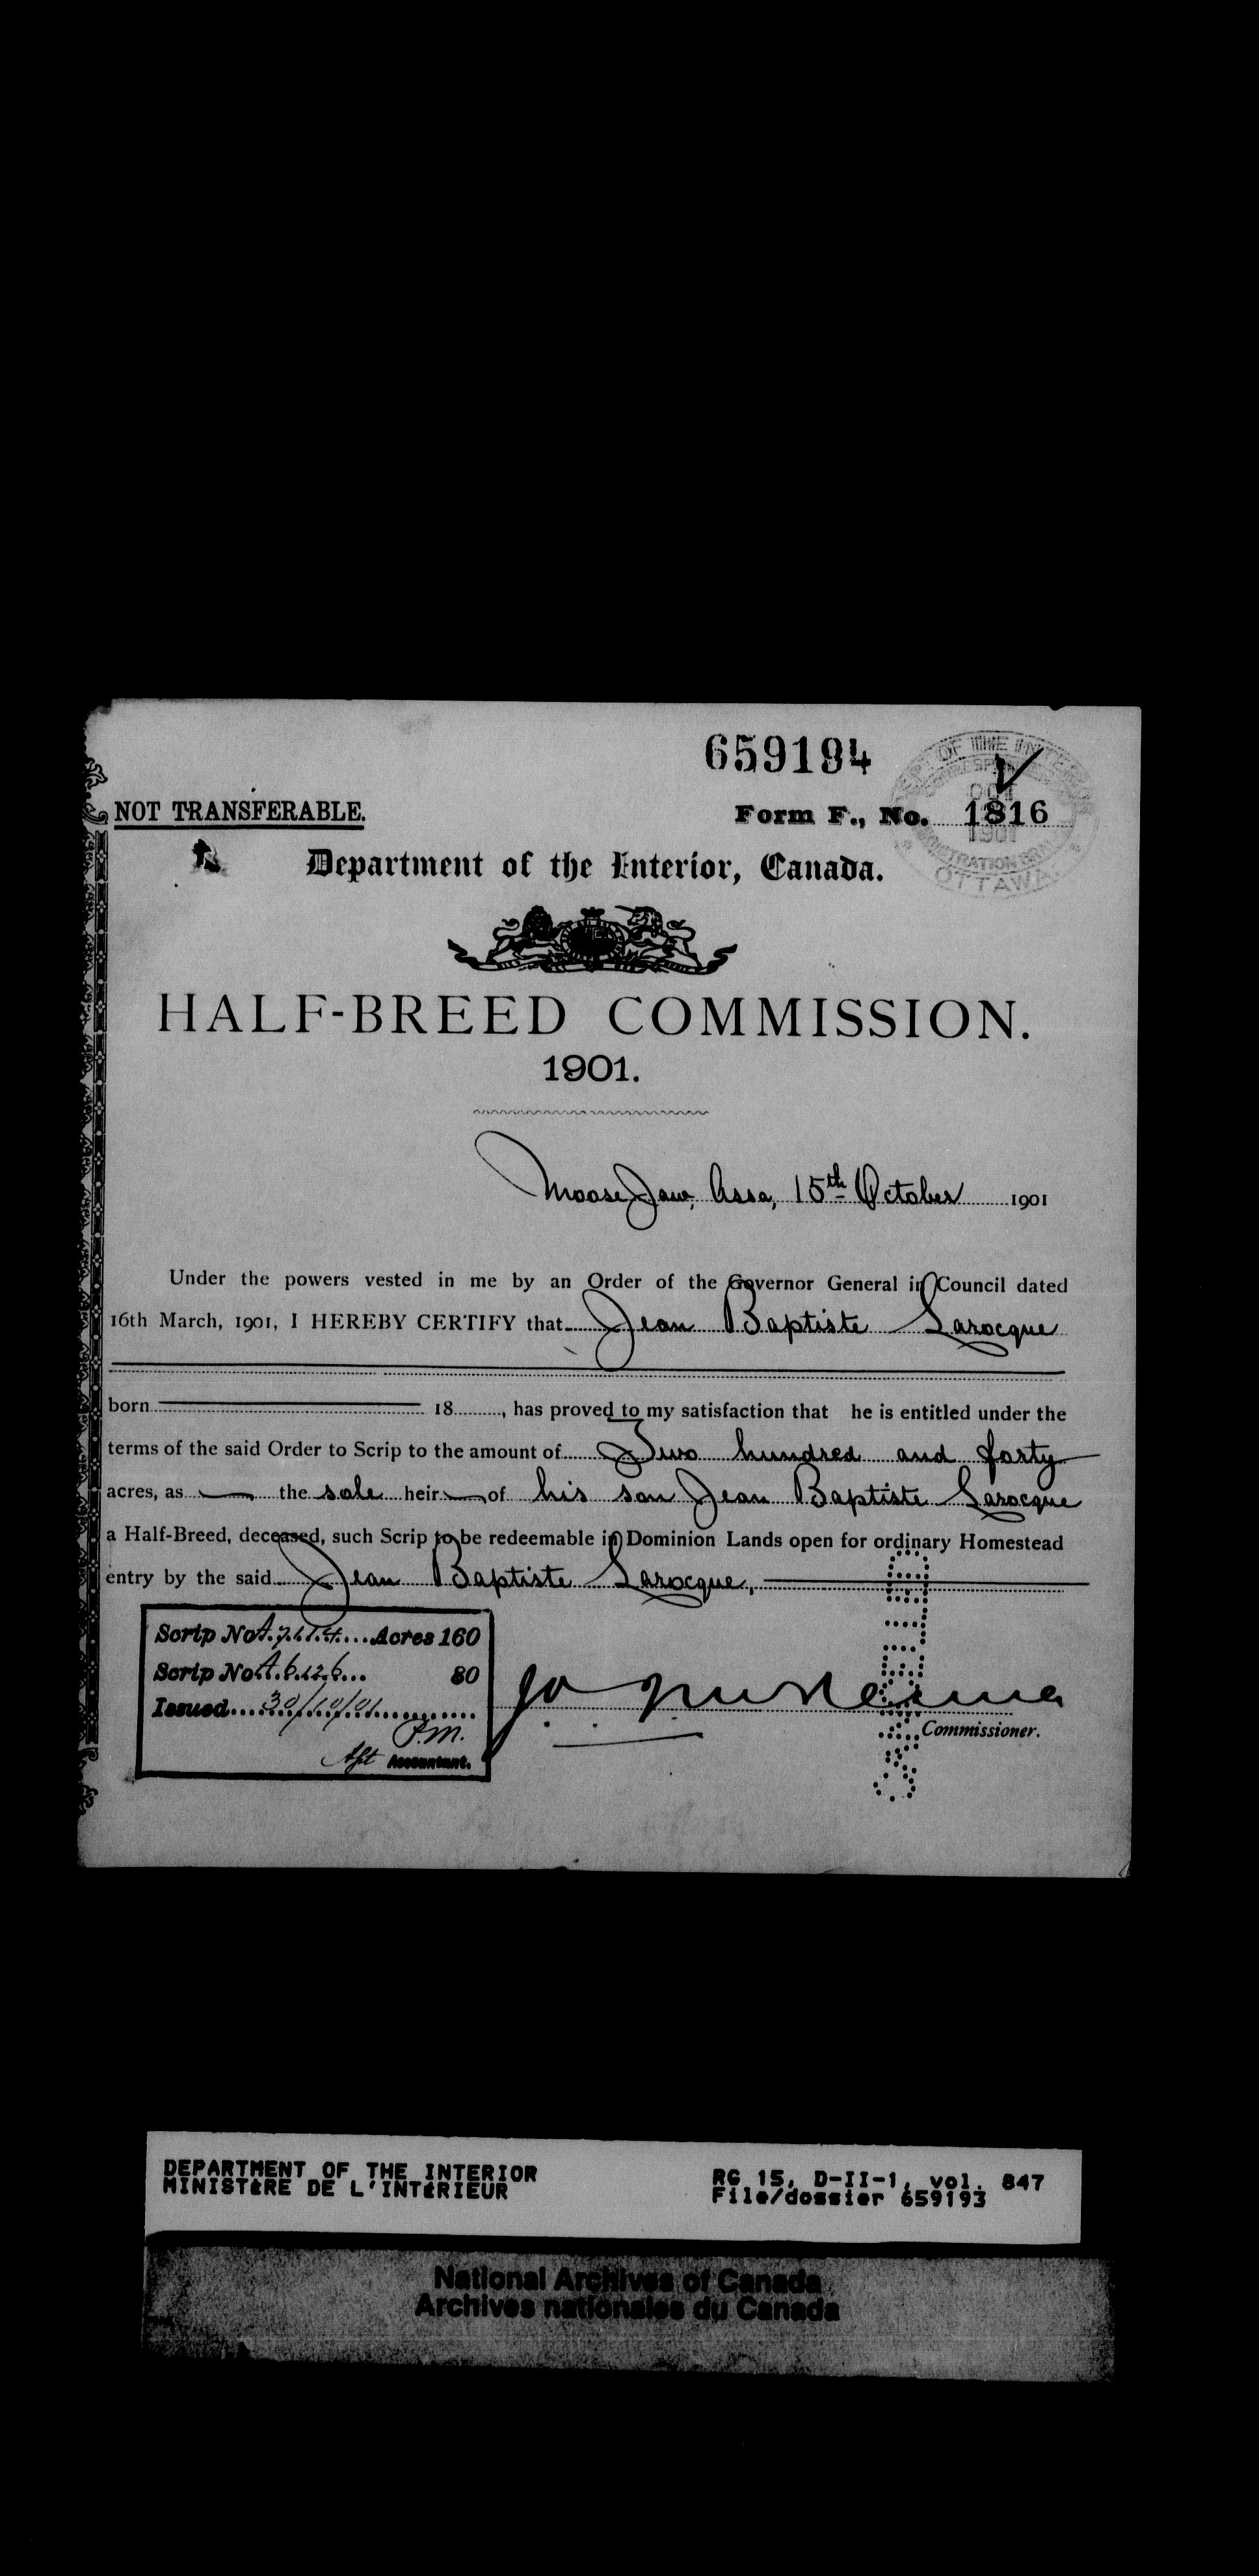 659194
NOT TRANSFERABLE.
Form F., No. 1816
DEPT OF THE INTERIOR
OCT
1901
REGISTRATION BRANCH
OTTAWA
Department of the Interior, Canada.
HALF-BREED COMMISSION.
1901.
Moose Jaw, Assa, 15th October 1901
Under the powers vested in me by an Order of the Governor General in Council dated
16th March, 1901, I HEREBY CERTIFY that Jean Baptiste Larocque
born 18 , has proved to my satisfaction that he is entitled under the
terms of the said Order to Scrip to the amount of Two hundred and forty
acres, as the sole heir of his son Jean Baptiste Larocque
a Half-Breed, deceased, such Scrip to be redeemable in Dominion Lands open for ordinary Homestead
entry by the said Jean Baptiste Larocque,
Scrip No Acres 160
Scrip No 80
Issued 30/10/01
P.M.
Accountant.
Commissioner.
DEPARTMENT OF THE INTERIOR
MINISTÈRE DE L'INTÉRIEUR
RG 15, D-II-1, vol. 847
File/dossier 659193
National Archives of Canada
Archives nationales du Canada